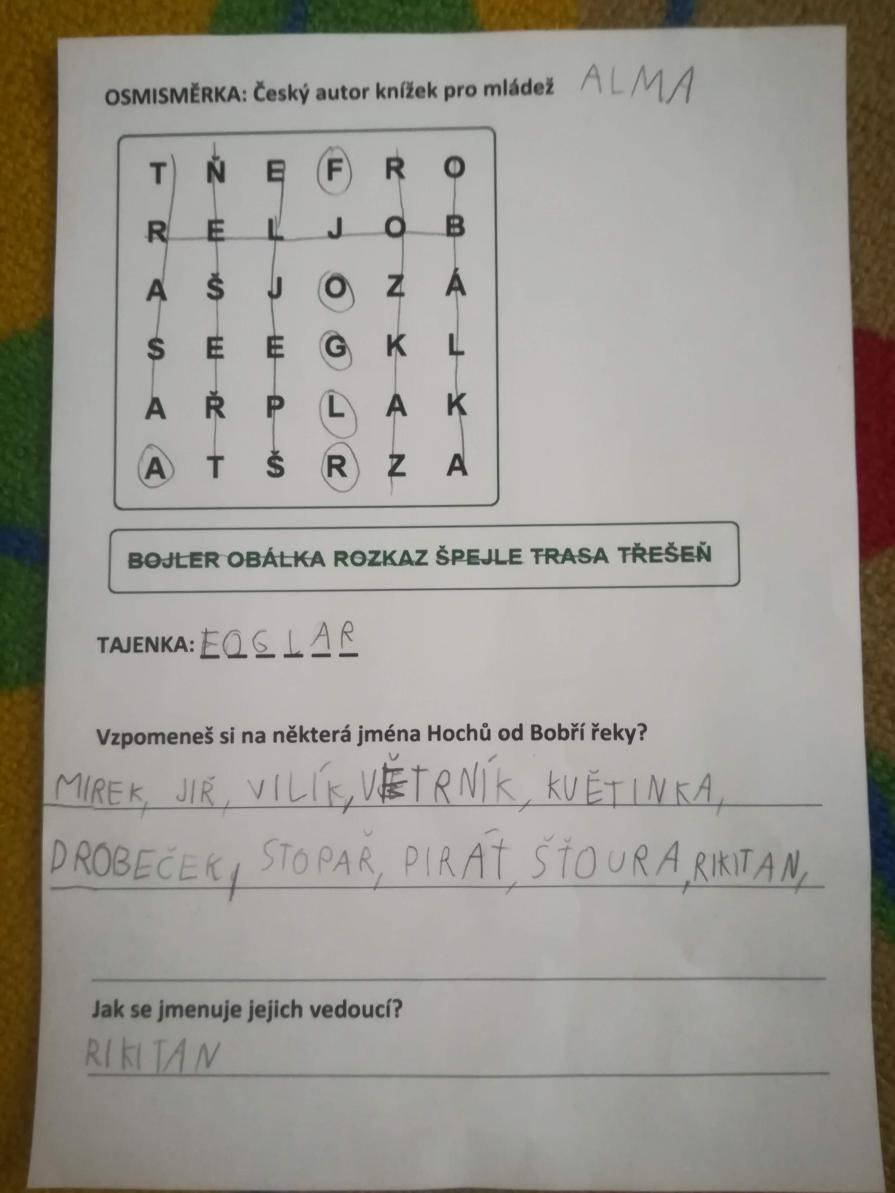 OSMISMĚRKA: Český autor knížek pro mládež ALMA
T Ň E F R O
R E L J O B
A Š J O Z Á
S E E G K L
A Ř P L A K
A T Š R Z A
BOJLER OBÁLKA ROZKAZ ŠPEJLE TRASA TŘEŠEŇ
TAJENKA: FOGLAR
Vzpomeneš si na některá jména Hochů od Bobří řeky?
MIREK, JIŘ, VILÍK, VĚTRNÍK, KVĚTINKA,
DROBEČEK, STOPAŘ, PIRÁT, ŠŤOURA, RIKITAN,
Jak se jmenuje jejich vedoucí?
RIKITAN